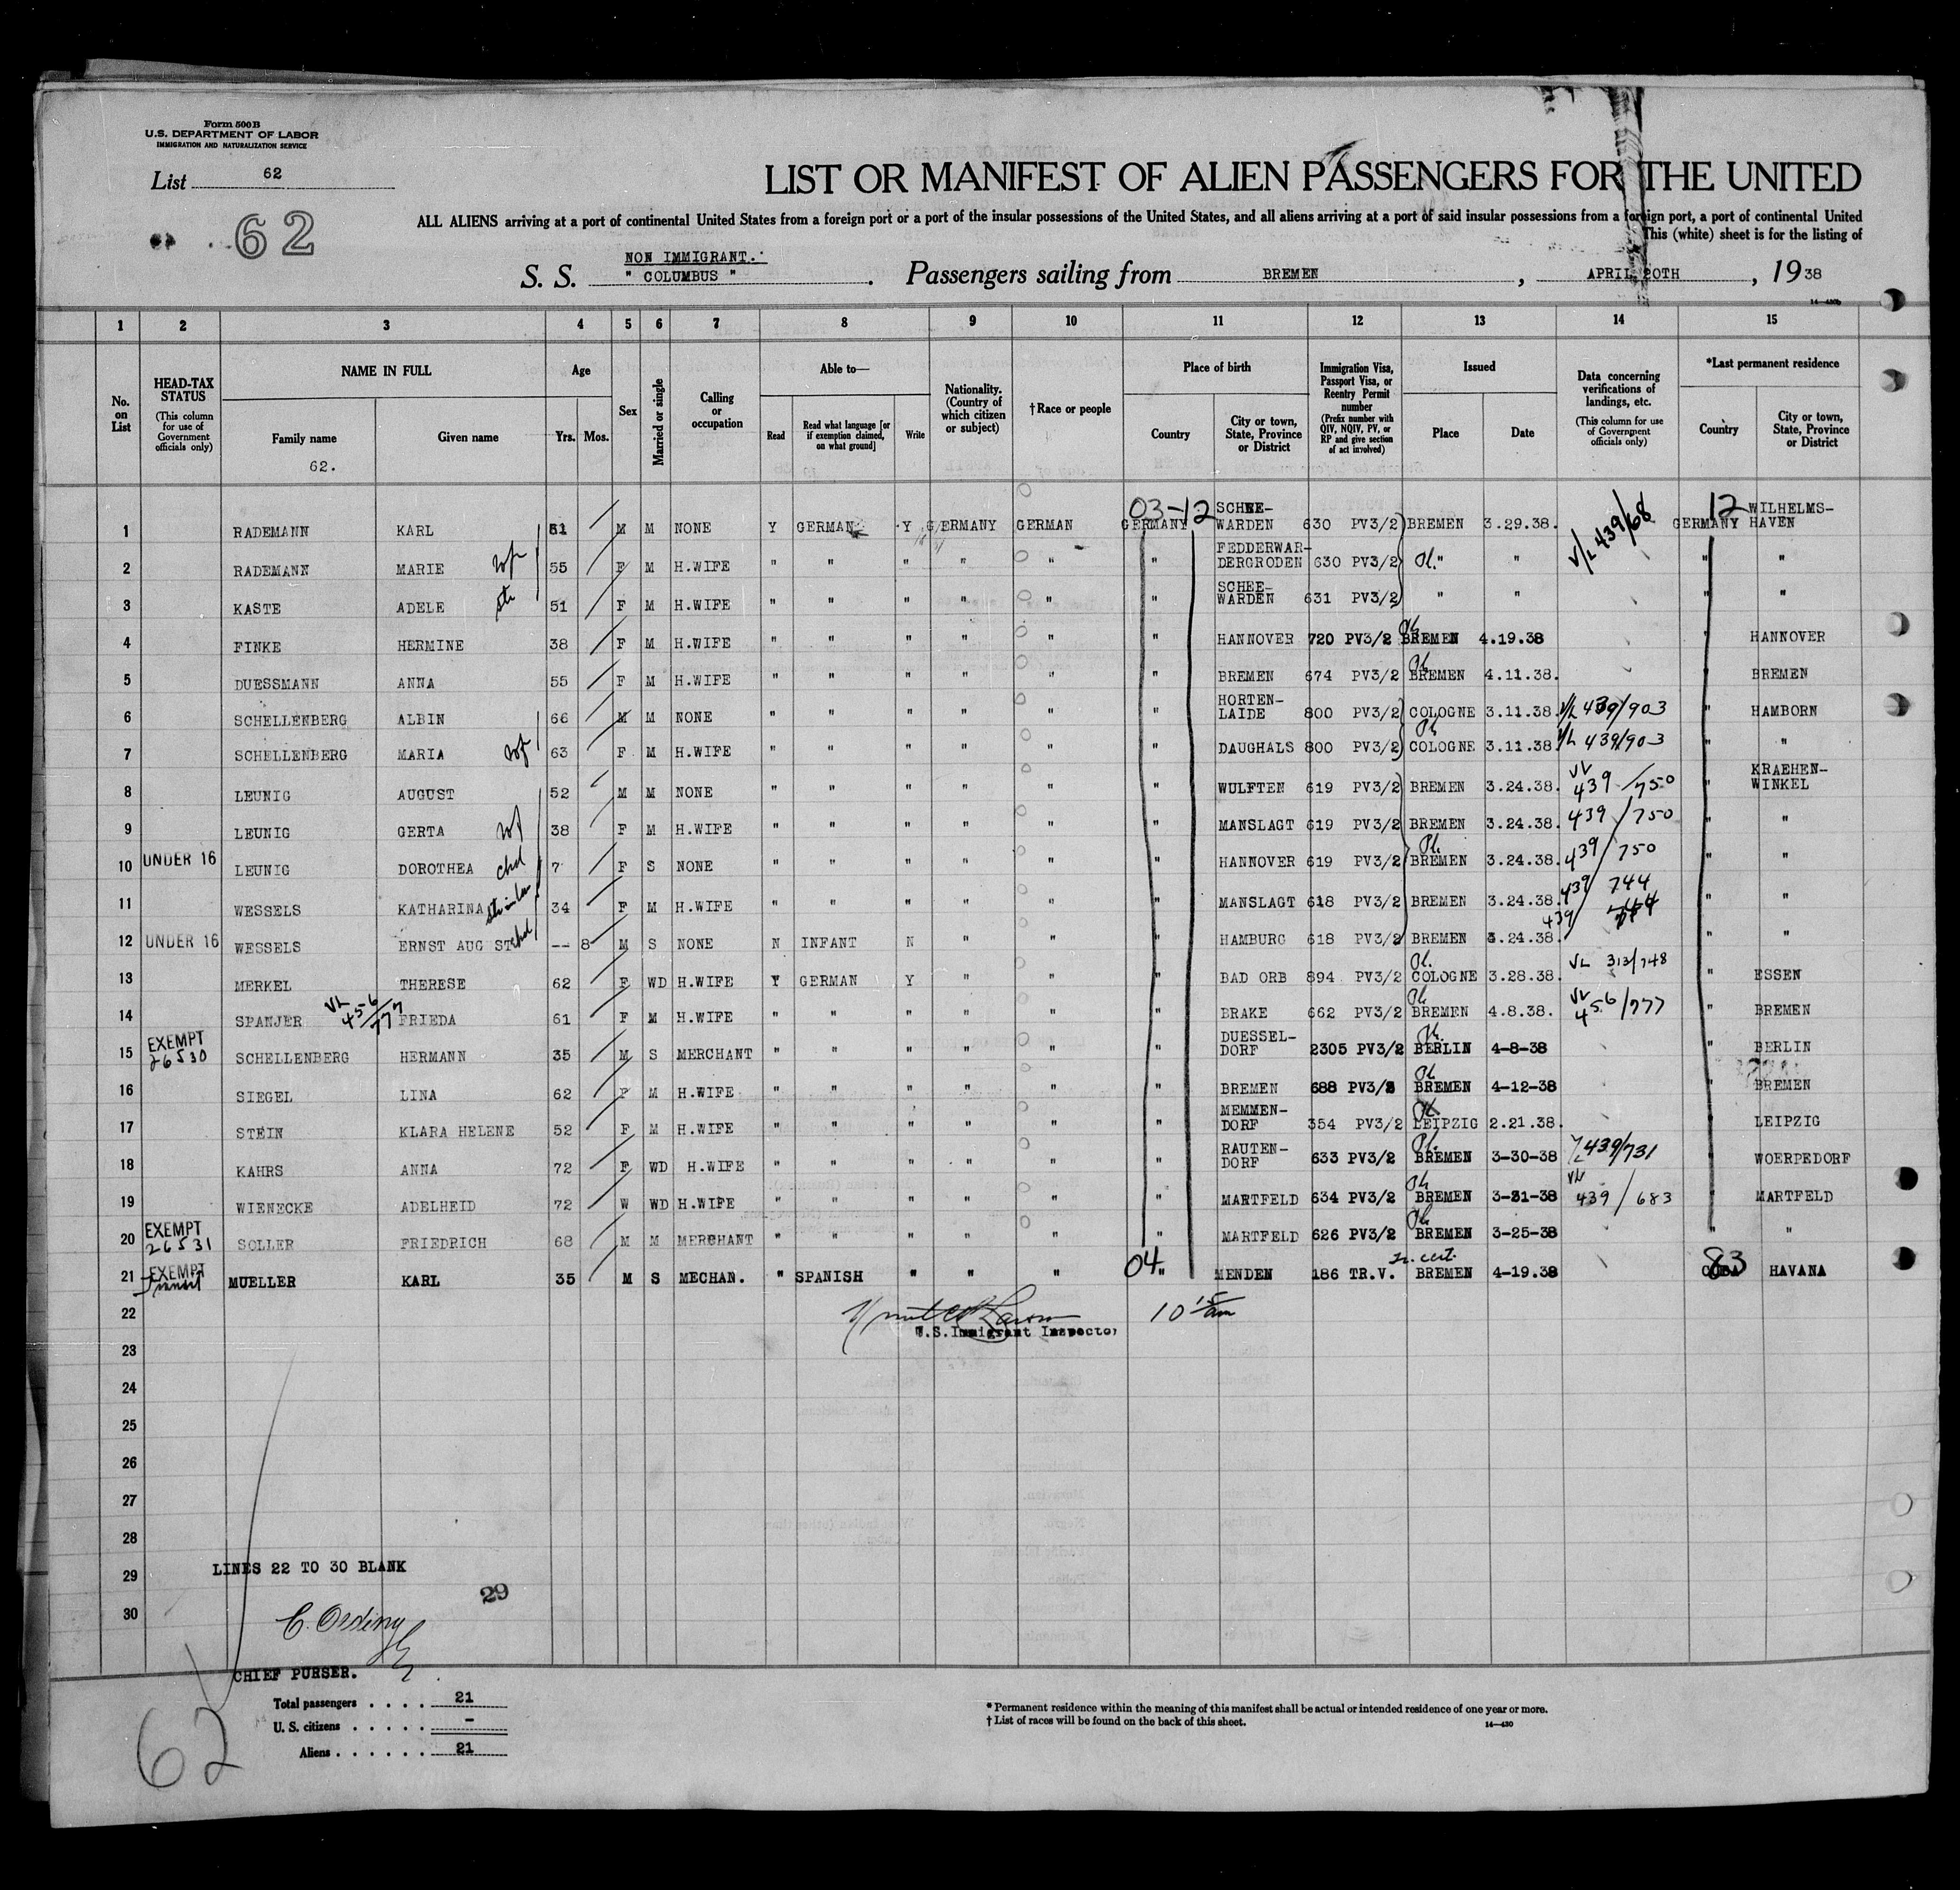 Form 500B
U.S. DEPARTMENT OF LABOR
IMMIGRATION AND NATURALIZATION SERVICE
List 62
62
LIST OR MANIFEST OF ALIEN PASSENGERS FOR THE UNITED
ALL ALIENS arriving at a port of continental United States from a foreign port or a port of the insular possessions of the United States, and all aliens arriving at a port of said insular possessions from a foreign port, a port of continental United
This (white) sheet is for the listing of
NON IMMIGRANT.
S. S. " COLUMBUS ". Passengers sailing from BREMEN, APRIL 20TH, 1938
14—430b
1 2 3 4 5 6 7 8 9 10 11 12 13 14 15
No. on List
HEAD-TAX STATUS (This column for use of Government officials only)
NAME IN FULL Family name Given name
62.
Age Yrs. Mos.
Sex
Married or single
Calling or occupation
Able to— Read Read what language [or if exemption claimed, on what ground] Write
Nationality. (Country of which citizen or subject)
†Race or people
Place of birth Country City or town, State, Province or District
Immigration Visa, Passport Visa, or Reentry Permit number (Prefix number with QIV, NQIV, PV, or RP and give section of act involved)
Issued Place Date
Data concerning verifications of landings, etc. (This column for use of Government officials only)
*Last permanent residence Country City or town, State, Province or District
1 RADEMANN KARL 51 M M NONE Y GERMAN Y GERMANY GERMAN 03-12 GERMANY SCHEE-WARDEN 630 PV3/2 BREMEN 3.29.38. V/L 439/68 12 GERMANY WILHELMS-HAVEN
2 RADEMANN MARIE wf 55 F M H.WIFE " " " " " " FEDDERWAR-DERGRODEN 630 PV3/2 " " " "
3 KASTE ADELE 51 F M H.WIFE " " " " " " SCHEE-WARDEN 631 PV3/2 " " " "
4 FINKE HERMINE 38 F M H.WIFE " " " " " " HANNOVER 720 PV3/2 BREMEN 4.19.38 " HANNOVER
5 DUESSMANN ANNA 55 F M H.WIFE " " " " " " BREMEN 674 PV3/2 BREMEN 4.11.38. " BREMEN
6 SCHELLENBERG ALBIN 66 M M NONE " " " " " " HORTEN-LAIDE 800 PV3/2 COLOGNE 3.11.38. V/L 439/903 " HAMBORN
7 SCHELLENBERG MARIA wf 63 F M H.WIFE " " " " " " DAUGHALS 800 PV3/2 COLOGNE 3.11.38. V/L 439/903 " "
8 LEUNIG AUGUST 52 M M NONE " " " " " " WULFTEN 619 PV3/2 BREMEN 3.24.38. VL 439/750 " KRAEHEN-WINKEL
9 LEUNIG GERTA wf 38 F M H.WIFE " " " " " " MANSLAGT 619 PV3/2 BREMEN 3.24.38. 439/750 " "
10 UNDER 16 LEUNIG DOROTHEA chd 7 F S NONE " " " " " " HANNOVER 619 PV3/2 BREMEN 3.24.38. 439/750 " "
11 WESSELS KATHARINA 34 F M H.WIFE " " " " " " MANSLAGT 618 PV3/2 BREMEN 3.24.38. 439/744 " "
12 UNDER 16 WESSELS ERNST AUG ST chd -- 8 M S NONE N INFANT N " " " HAMBURG 618 PV3/2 BREMEN 3.24.38. 439/ " "
13 MERKEL THERESE 62 F WD H.WIFE Y GERMAN Y " " " BAD ORB 894 PV3/2 COLOGNE 3.28.38. VL 313/748 " ESSEN
14 SPANJER VL 456/777 FRIEDA 61 F M H.WIFE " " " " " " BRAKE 662 PV3/2 BREMEN 4.8.38. VL 456/777 " BREMEN
15 EXEMPT 26530 SCHELLENBERG HERMANN 35 M S MERCHANT " " " " " " DUESSEL-DORF 2305 PV3/2 BERLIN 4-8-38 " BERLIN
16 SIEGEL LINA 62 F M H.WIFE " " " " " " BREMEN 688 PV3/2 BREMEN 4-12-38 " BREMEN
17 STEIN KLARA HELENE 52 F M H.WIFE " " " " " " MEMMEN-DORF 354 PV3/2 LEIPZIG 2.21.38. " LEIPZIG
18 KAHRS ANNA 72 F WD H.WIFE " " " " " " RAUTEN-DORF 633 PV3/2 BREMEN 3-30-38 V/L 439/731 " WOERPEDORF
19 WIENECKE ADELHEID 72 W WD H.WIFE " " " " " " MARTFELD 634 PV3/2 BREMEN 3-31-38 VL 439/683 " MARTFELD
20 EXEMPT 26531 SOLLER FRIEDRICH 68 M M MERCHANT " " " " " " MARTFELD 626 PV3/2 BREMEN 3-25-38 " "
21 EXEMPT transit MUELLER KARL 35 M S MECHAN. " SPANISH " " " 04 " MENDEN 186 TR.V. BREMEN 4-19.38 83 CUBA HAVANA
22 10 15 am
U.S. Immigrant Inspector
23
24
25
26
27
28
29 LINES 22 TO 30 BLANK
29
30
CHIEF PURSER.
62
Total passengers . . . . 21
U. S. citizens . . . . . -
Aliens . . . . . . 21
* Permanent residence within the meaning of this manifest shall be actual or intended residence of one year or more.
† List of races will be found on the back of this sheet. 14—430